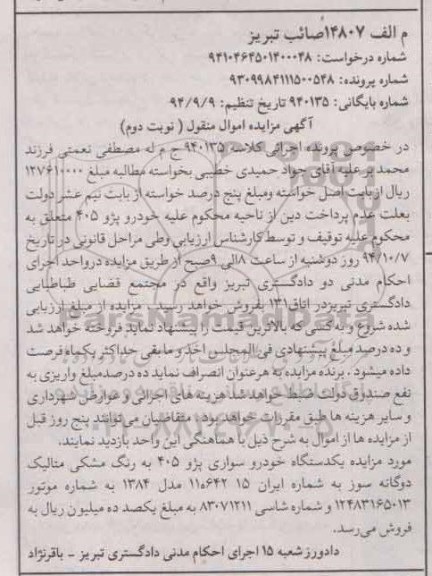 م الف ۱۴۸۰۷صائب تبریز
شماره درخواست: ۹۴۱۰۴۶۴۵۰۱۴۰۰۰۴۸
شماره پرونده: ۹۳۰۹۹۸۴۱۱۱۵۰۰۵۴۸
شماره بایگانی: ۹۴۰۱۳۵ تاریخ تنظیم: ۹۴/۹/۹
آگهی مزایده اموال منقول ( نوبت دوم)
در خصوص پرونده اجرائی کلاسه ۹۴۰۱۳۵ ج م له مصطفی نعمتی فرزند
محمد بر علیه آقای جواد حمیدی خطیبی بخواسته مطالبه مبلغ ۱۲۷۶۱۰۰۰۰
ریال از بابت اصل خواسته ومبلغ پنج درصد خواسته از بابت نیم عشر دولت
بعلت عدم پرداخت دین از ناحیه محکوم علیه خودرو پژو ۴۰۵ متعلق به
محکوم علیه توقیف و توسط کارشناس ارزیابی وطی مراحل قانونی در تاریخ
۹۴/۱۰/۷ روز دوشنبه از ساعت ۸الی ۹صبح از طریق مزایده درواحد اجرای
احکام مدنی دو دادگستری تبریز واقع در مجتمع قضایی طباطبایی
دادگستری تبریزدر اتاق۱۳۱ بفروش خواهد رسید. مزایده از مبلغ ارزیابی
شده شروع و به کسی که بالاترین قیمت را پیشنهاد نماید فروخته خواهد شد
و ده درصد مبلغ پیشنهادی فی المجلس اخذ و مابقی حداکثر یکماه فرصت
داده میشود. برنده مزایده به هرعنوان انصراف نماید ده درصدمبلغ واریزی به
نفع صندوق دولت ضبط خواهد شد هزینه های اجرائی و عوارض شهرداری
و سایر هزینه ها طبق مقررات خواهد بود. متقاضیان می توانند پنج روز قبل
از مزایده ها از اموال به شرح ذیل با هماهنگی این واحد بازدید نمایند.
مورد مزایده یکدستگاه خودرو سواری پژو ۴۰۵ به رنگ مشکی متالیک
دوگانه سوز به شماره ایران ۱۵ ۶۴۲ه۱۱ مدل ۱۳۸۴ به شماره موتور
۱۲۴۸۳۱۶۵۰۱۳ و شماره شاسی ۸۳۰۷۱۲۱۱ به مبلغ یکصد ده میلیون ریال به
فروش می رسد.
دادورز شعبه ۱۵ اجرای احکام مدنی دادگستری تبریز - باقرنژاد
ParsNamadData